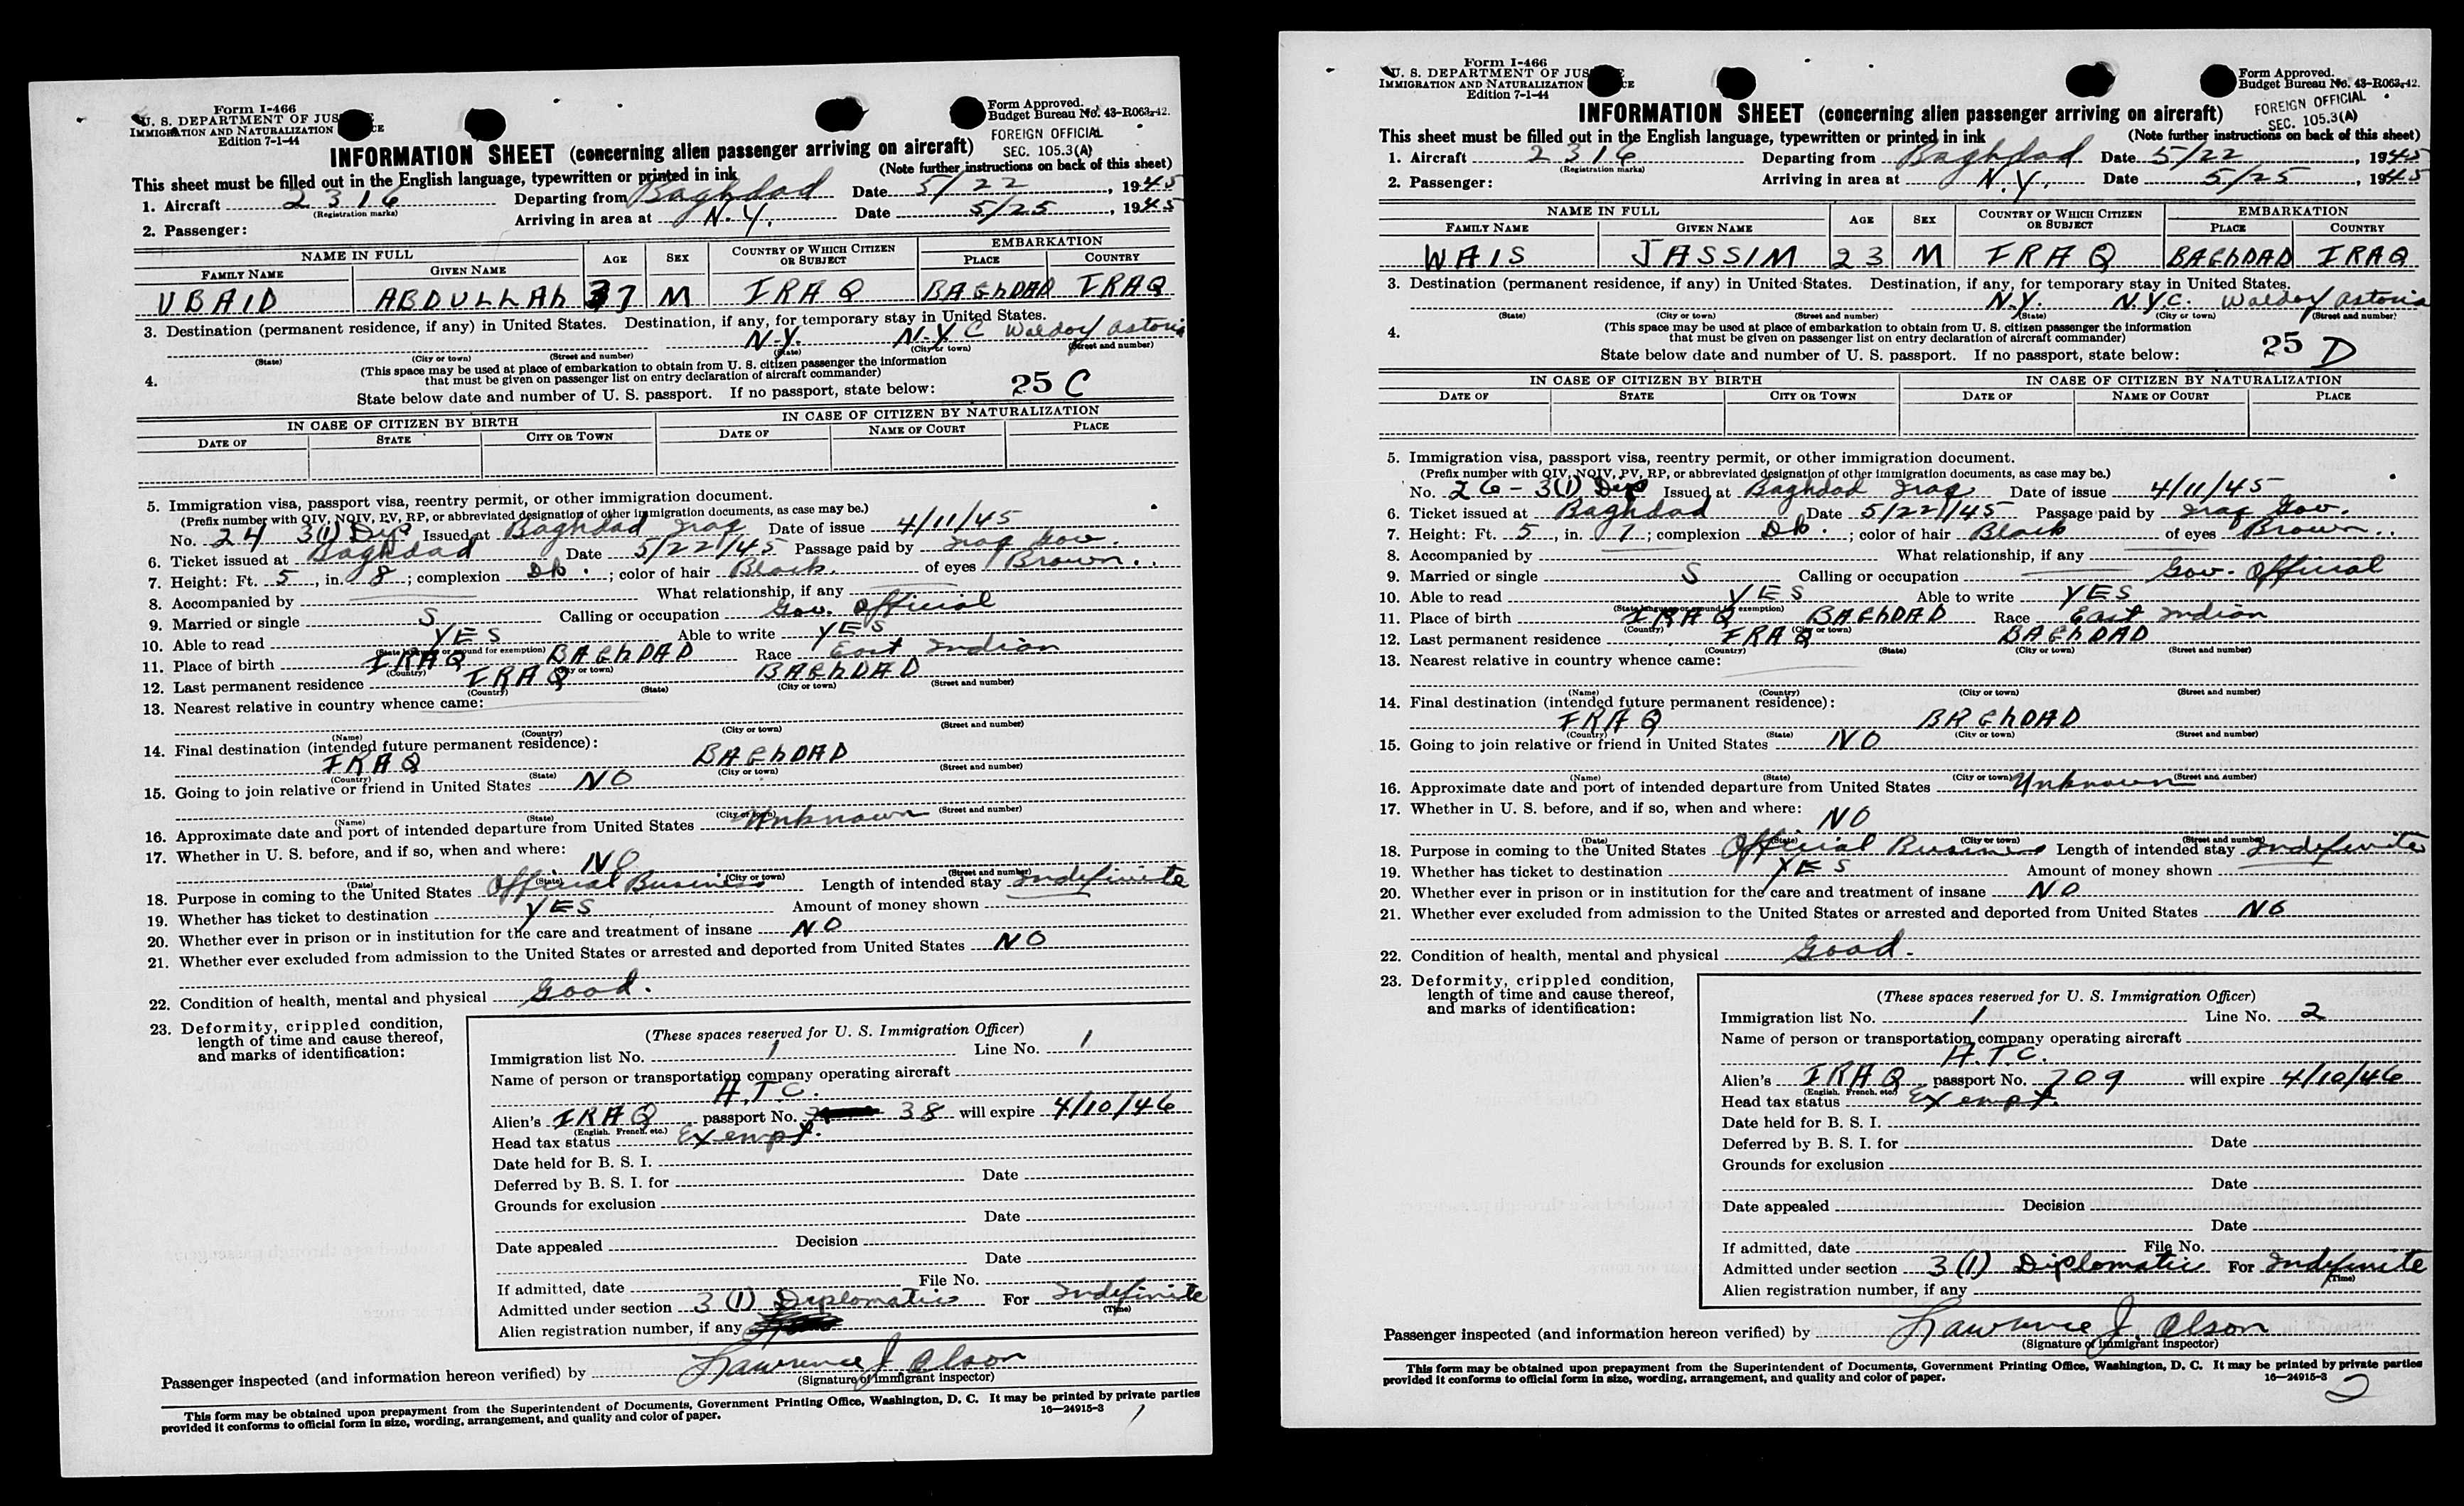 Form I-466
U. S. DEPARTMENT OF JUS
IMMIGRATION AND NATURALIZATION CE
Edition 7-1-44
Form Approved.
Budget Bureau No. 43-R063-42.
FOREIGN OFFICIAL
SEC. 105.3(A)
INFORMATION SHEET (concerning alien passenger arriving on aircraft)
(Note further instructions on back of this sheet)
This sheet must be filled out in the English language, typewritten or printed in ink
1. Aircraft 2316 Departing from Baghdad Date 5/22, 1945
(Registration marks)
2. Passenger: Arriving in area at N.Y. Date 5/25, 1945
NAME IN FULL AGE SEX COUNTRY OF WHICH CITIZEN OR SUBJECT EMBARKATION
FAMILY NAME GIVEN NAME PLACE COUNTRY
UBAID ABDULLAh 37 M IRAQ BAGhDAD IRAQ
3. Destination (permanent residence, if any) in United States. Destination, if any, for temporary stay in United States.
N.Y. N.Y.C Waldorf Astoria
(State) (City or town) (Street and number) (State) (City or town) (Street and number)
4. (This space may be used at place of embarkation to obtain from U. S. citizen passenger the information
that must be given on passenger list on entry declaration of aircraft commander)
State below date and number of U. S. passport. If no passport, state below: 25 C
IN CASE OF CITIZEN BY BIRTH IN CASE OF CITIZEN BY NATURALIZATION
DATE OF STATE CITY OR TOWN DATE OF NAME OF COURT PLACE
5. Immigration visa, passport visa, reentry permit, or other immigration document.
(Prefix number with QIV, NQIV, PV, RP, or abbreviated designation of other immigration documents, as case may be.)
No. 24 3(1) Dip Issued at Baghdad Iraq Date of issue 4/11/45
6. Ticket issued at Baghdad Date 5/22/45 Passage paid by Iraq Gov.
7. Height: Ft. 5, in. 8; complexion Dk.; color of hair Black. of eyes Brown.
8. Accompanied by What relationship, if any
9. Married or single S Calling or occupation Gov. Official
10. Able to read YES Able to write YES
(State language or ground for exemption)
11. Place of birth IRAQ BAGhDAD Race East Indian
(Country) (City or town)
12. Last permanent residence IRAQ BAGhDAD
(Country) (State) (City or town) (Street and number)
13. Nearest relative in country whence came:
(Name) (Country) (City or town) (Street and number)
14. Final destination (intended future permanent residence):
IRAQ BAGhDAD
(Country) (State) (City or town) (Street and number)
15. Going to join relative or friend in United States NO
(Name) (State) (City or town) (Street and number)
16. Approximate date and port of intended departure from United States Unknown
17. Whether in U. S. before, and if so, when and where:
NO
(Date) (State) (City or town) (Street and number)
18. Purpose in coming to the United States Official Business Length of intended stay Indefinite
19. Whether has ticket to destination YES Amount of money shown
20. Whether ever in prison or in institution for the care and treatment of insane NO
21. Whether ever excluded from admission to the United States or arrested and deported from United States NO
22. Condition of health, mental and physical Good.
23. Deformity, crippled condition,
length of time and cause thereof,
and marks of identification:
(These spaces reserved for U. S. Immigration Officer)
Immigration list No. 1 Line No. 1
Name of person or transportation company operating aircraft
A.T.C.
Alien's IRAQ passport No. 38 will expire 4/10/46
(English, French, etc.)
Head tax status Exempt.
Date held for B. S. I.
Deferred by B. S. I. for Date
Grounds for exclusion
Date
Date appealed Decision
Date
If admitted, date File No.
Admitted under section 3 (1) Diplomatic For Indefinite
(Time)
Alien registration number, if any
Passenger inspected (and information hereon verified) by Lawrence J. Olson
(Signature of immigrant inspector)
This form may be obtained upon prepayment from the Superintendent of Documents, Government Printing Office, Washington, D. C. It may be printed by private parties
provided it conforms to official form in size, wording, arrangement, and quality and color of paper. 16—24915-3
1
Form I-466
U. S. DEPARTMENT OF JUS CE
IMMIGRATION AND NATURALIZATION CE
Edition 7-1-44
Form Approved.
Budget Bureau No. 43-R063-42.
FOREIGN OFFICIAL
SEC. 105.3(A)
INFORMATION SHEET (concerning alien passenger arriving on aircraft)
This sheet must be filled out in the English language, typewritten or printed in ink (Note further instructions on back of this sheet)
1. Aircraft 2316 Departing from Baghdad Date 5/22, 1945
(Registration marks)
2. Passenger: Arriving in area at N.Y. Date 5/25, 1945
NAME IN FULL AGE SEX COUNTRY OF WHICH CITIZEN OR SUBJECT EMBARKATION
FAMILY NAME GIVEN NAME PLACE COUNTRY
WAIS JASSIM 23 M IRAQ BAGhDAD IRAQ
3. Destination (permanent residence, if any) in United States. Destination, if any, for temporary stay in United States.
N.Y. N.Y.C. Waldorf Astoria
(State) (City or town) (Street and number) (State) (City or town) (Street and number)
4. (This space may be used at place of embarkation to obtain from U. S. citizen passenger the information
that must be given on passenger list on entry declaration of aircraft commander)
State below date and number of U. S. passport. If no passport, state below: 25 D
IN CASE OF CITIZEN BY BIRTH IN CASE OF CITIZEN BY NATURALIZATION
DATE OF STATE CITY OR TOWN DATE OF NAME OF COURT PLACE
5. Immigration visa, passport visa, reentry permit, or other immigration document.
(Prefix number with QIV, NQIV, PV, RP, or abbreviated designation of other immigration documents, as case may be.)
No. 26 - 3(1) Dip Issued at Baghdad Iraq Date of issue 4/11/45
6. Ticket issued at Baghdad Date 5/22/45 Passage paid by Iraq Gov.
7. Height: Ft. 5, in. 7; complexion Dk.; color of hair Black of eyes Brown.
8. Accompanied by What relationship, if any
9. Married or single S Calling or occupation Gov. Official
10. Able to read YES Able to write YES
(State language or ground for exemption)
11. Place of birth IRAQ BAGhDAD Race East Indian
(Country) (City or town)
12. Last permanent residence IRAQ BAGhDAD
(Country) (State) (City or town) (Street and number)
13. Nearest relative in country whence came:
(Name) (Country) (City or town) (Street and number)
14. Final destination (intended future permanent residence):
IRAQ BAGhDAD
(Country) (State) (City or town) (Street and number)
15. Going to join relative or friend in United States NO
(Name) (State) (City or town) (Street and number)
16. Approximate date and port of intended departure from United States Unknown
17. Whether in U. S. before, and if so, when and where:
NO
(Date) (State) (City or town) (Street and number)
18. Purpose in coming to the United States Official Business Length of intended stay Indefinite
19. Whether has ticket to destination YES Amount of money shown
20. Whether ever in prison or in institution for the care and treatment of insane NO
21. Whether ever excluded from admission to the United States or arrested and deported from United States NO
22. Condition of health, mental and physical Good.
23. Deformity, crippled condition,
length of time and cause thereof,
and marks of identification:
(These spaces reserved for U. S. Immigration Officer)
Immigration list No. 1 Line No. 2
Name of person or transportation company operating aircraft
A.T.C.
Alien's IRAQ passport No. 709 will expire 4/10/46
(English, French, etc.)
Head tax status Exempt.
Date held for B. S. I.
Deferred by B. S. I. for Date
Grounds for exclusion
Date
Date appealed Decision
Date
If admitted, date File No.
Admitted under section 3 (1) Diplomatic For Indefinite
(Time)
Alien registration number, if any
Passenger inspected (and information hereon verified) by Lawrence J. Olson
(Signature of immigrant inspector)
This form may be obtained upon prepayment from the Superintendent of Documents, Government Printing Office, Washington, D. C. It may be printed by private parties
provided it conforms to official form in size, wording, arrangement, and quality and color of paper. 16—24915-3
2